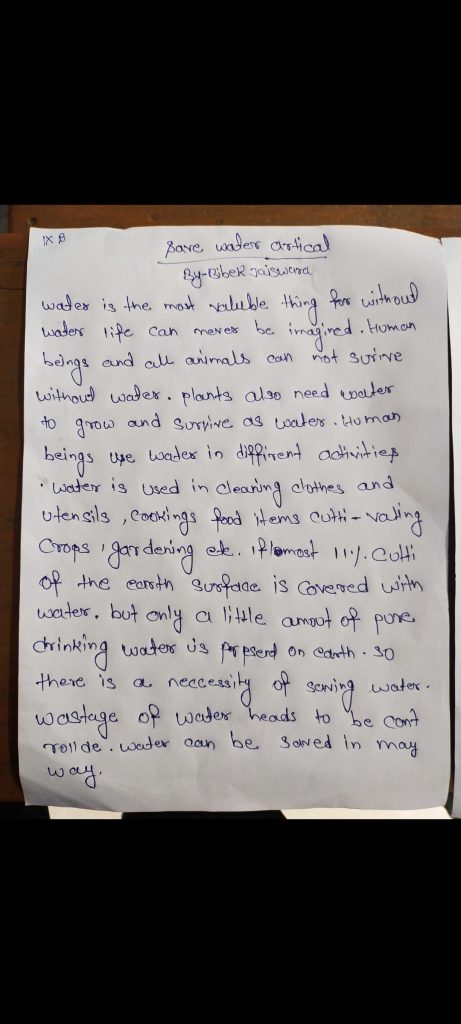 IX B
Save water artical
By-Bibek Jaiswara
water is the most valuble thing for without
water life can never be imagined. Human
beings and all animals can not surive
without water. plants also need water
to grow and survive as water. Human
beings use water in diffirent activities
. water is used in cleaning clothes and
utensils, cookings food items cutti-vating
Crops, gardening etc. 11%. Cutti
of the earth surface is covered with
water. but only a little amout of pure
drinking water is on earth. so
there is a neccessity of saving water.
wastage of water heads to be cont
rollde. water can be saved in may
way.